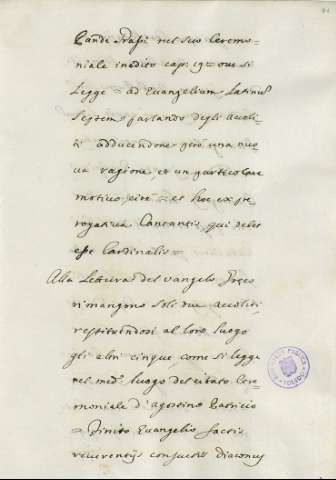 Paride Grassi nel suo Ceremo-
niale inedito cap. 19 = ove si
Legge = ad Evangelium Latinum
Septem = parlando degli Accoli-
ti adducendone però una nuo-
va ragione, et un particolare
motivo, cioè = et hoc ex pre
rogativa Cantantis, qui debet
esse Cardinalis =
Alla Lettura del vangelo Greco
rimangono soli due accoliti
restituendosi al loro luogo
gli altri cinque, come si legge
nel med.º luogo del citato Cere
moniale d'Agostino Patricio
= Finito Evangelio factis
reverentijs consuetis diaconus